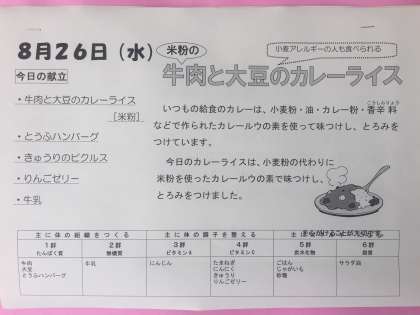 8月26日（水）
米粉の
小麦アレルギーの人も食べられる
牛肉と大豆のカレーライス
今日の献立
・牛肉と大豆のカレーライス
［米粉］
・とうふハンバーグ
・きゅうりのピクルス
・りんごゼリー
・牛乳
いつもの給食のカレーは、小麦粉・油・カレー粉・香辛料
こうしんりょう
などで作られたカレールウの素を使って味つけし、とろみを
つけています。
今日のカレーライスは、小麦粉の代わりに
米粉を使ったカレールウの素で味つけし、
とろみをつけました。
主に体の組織をつくる
主に体の調子を整える
1群
たんぱく質
2群
無機質
3群
ビタミンA
4群
ビタミンC
5群
炭水化物
6群
脂質
牛肉
大豆
とうふハンバーグ
牛乳
にんじん
たまねぎ
にんにく
きゅうり
りんごゼリー
ごはん
じゃがいも
砂糖
サラダ油